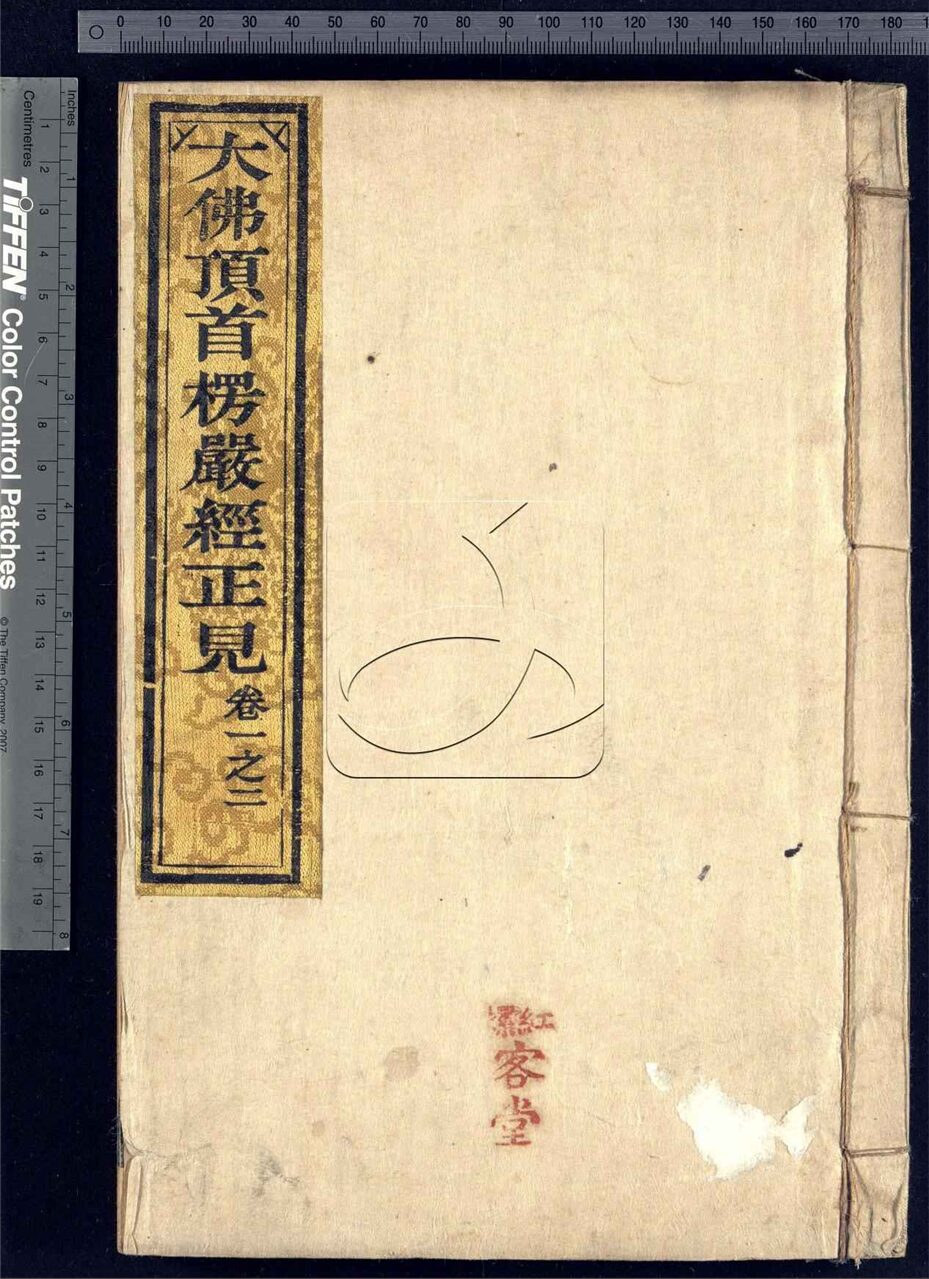 0 10 20 30 40 50 60 70 80 90 100 110 120 130 140 150 160 170 180
Inches
1 2 3 4 5 6 7 8
Centimetres
1 2 3 4 5 6 7 8 9 10 11 12 13 14 15 16 17 18 19
TIFFEN® Color Control Patches
© The Tiffen Company, 2007
大佛頂首楞嚴經正見卷一之二
紅
客堂